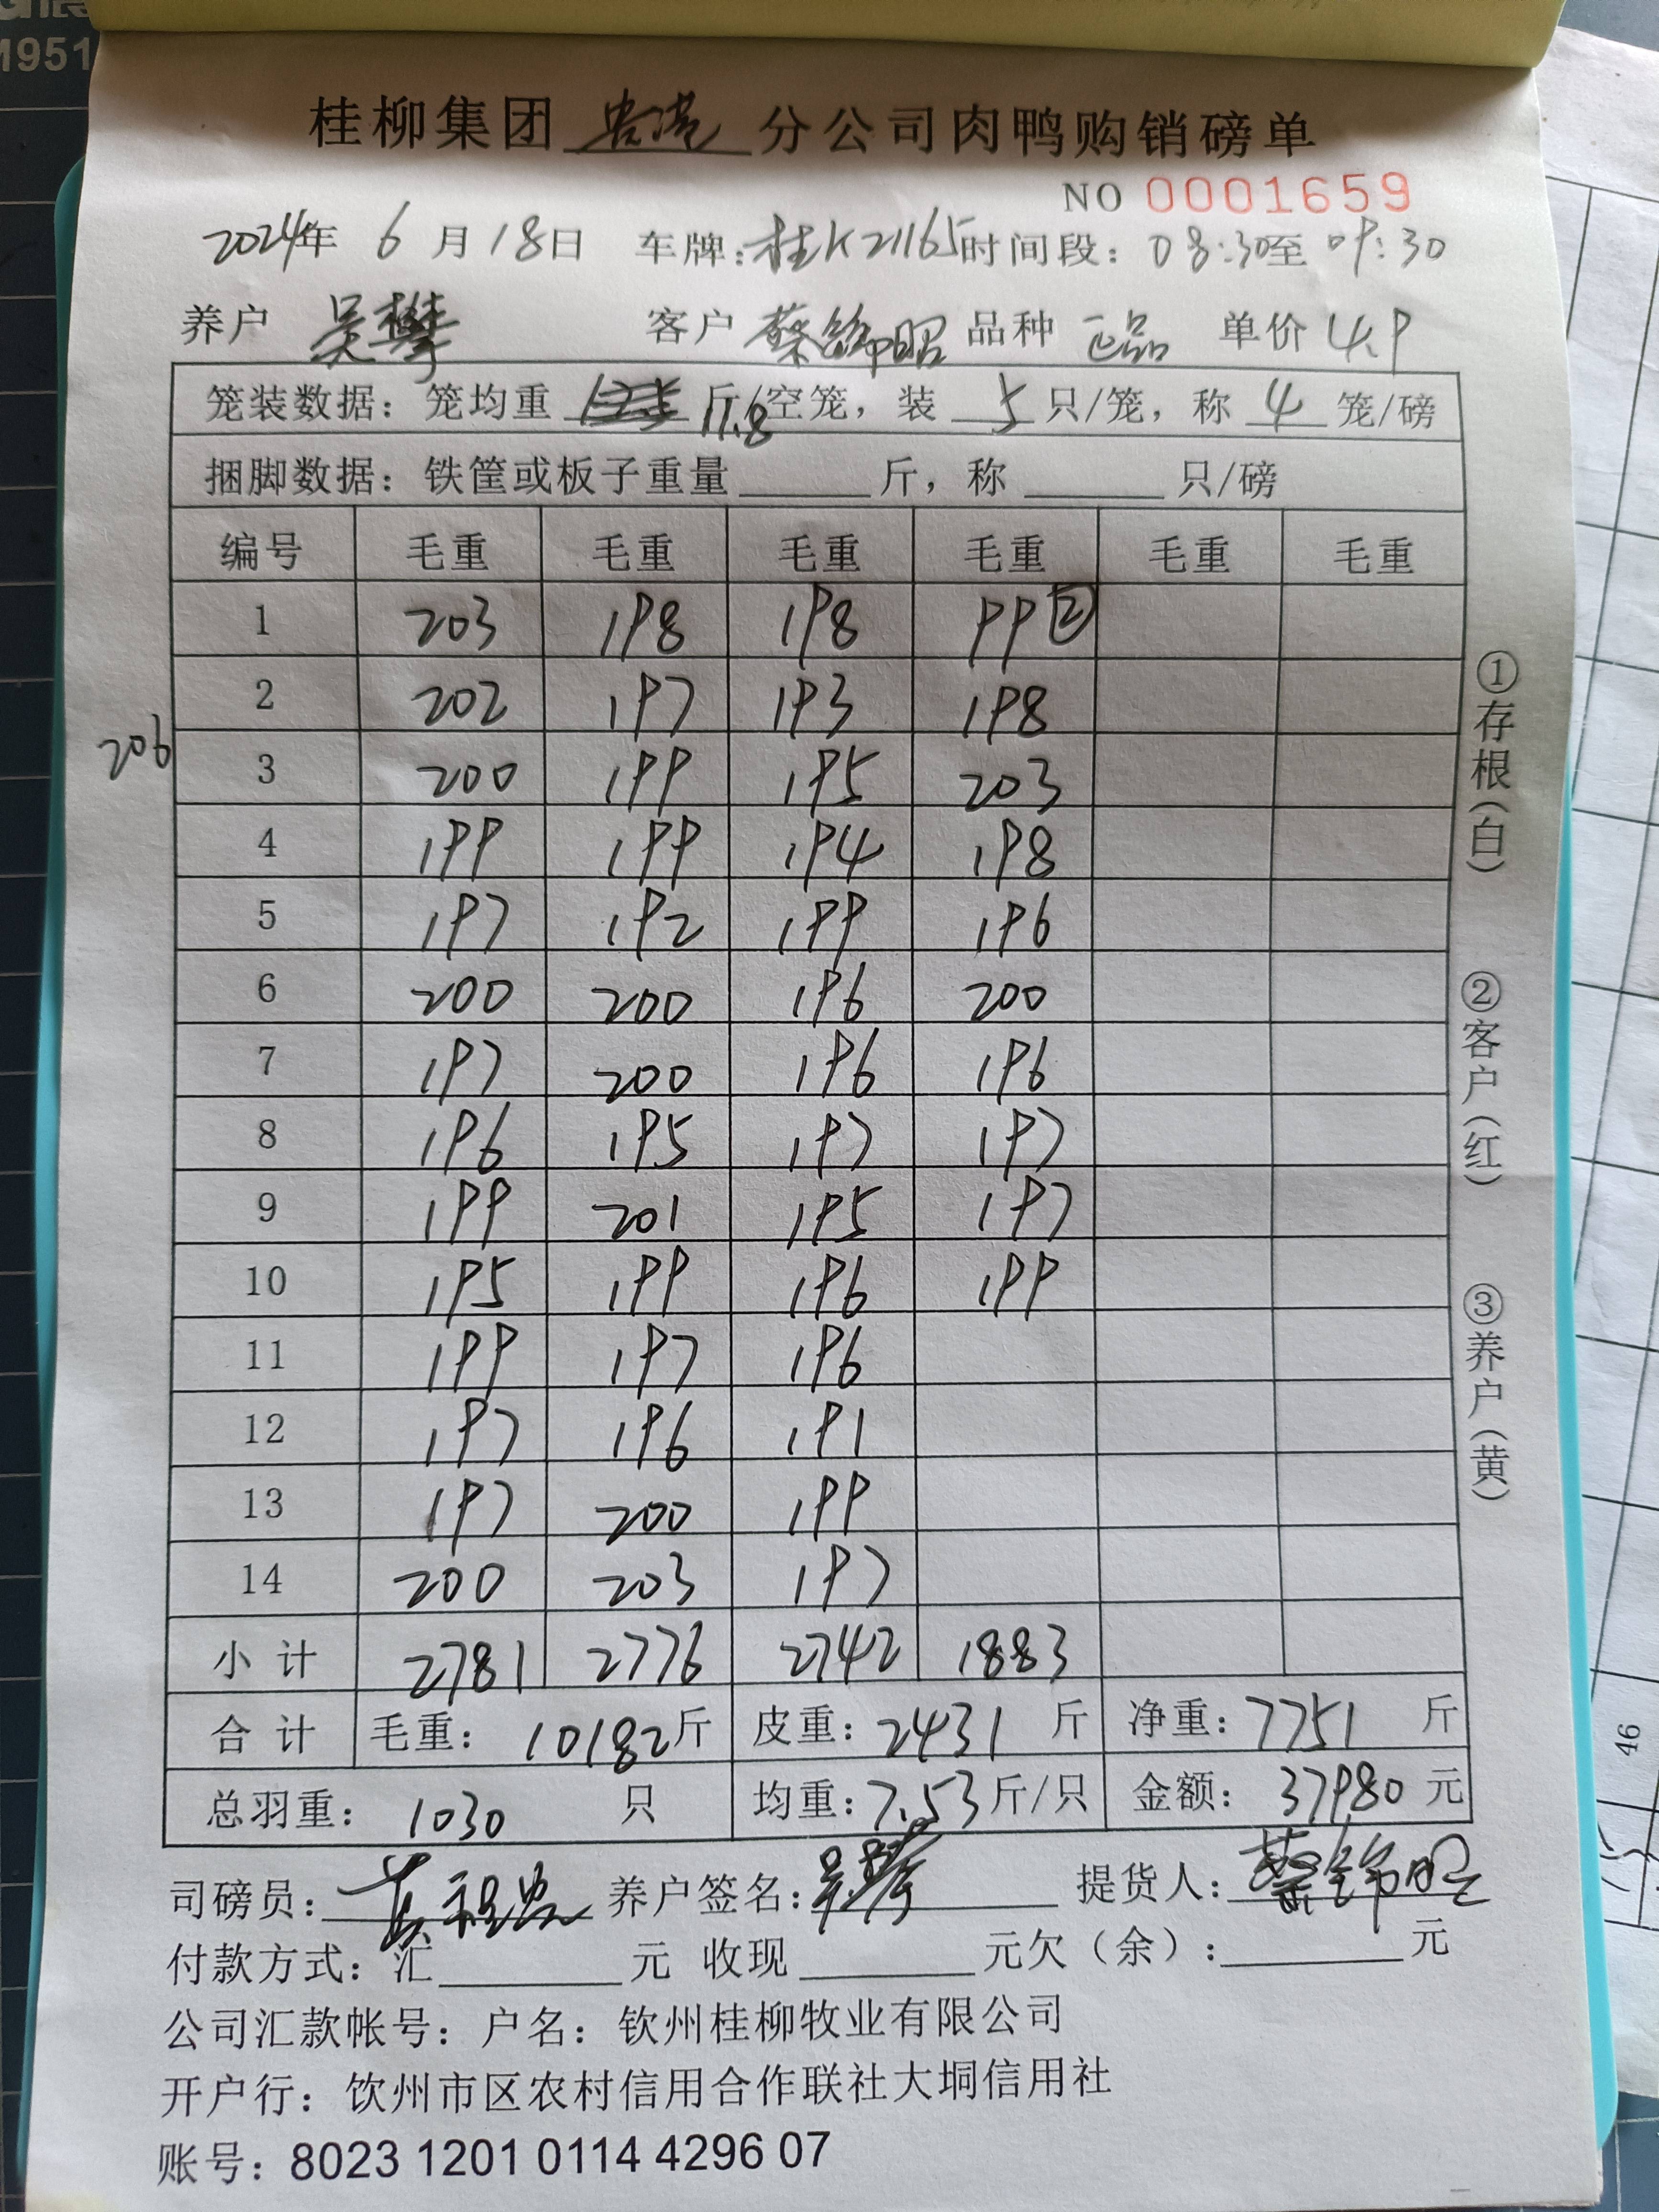 M951
桂柳集团 贵港 分公司肉鸭购销磅单
NO 0001659
2024年 6 月 18日 车牌:桂K21165 时间段: 08:30至 09:30
养户 吴攀 客户 蔡锦昭 品种 正品 单价 4.9
笼装数据: 笼均重 11.8 斤/空笼, 装 5 只/笼, 称 4 笼/磅
捆脚数据: 铁筐或板子重量 斤, 称 只/磅
编号 毛重 毛重 毛重 毛重 毛重 毛重
1 203 198 198 99 ②
2 202 197 193 198
206
3 200 199 195 203
4 199 199 194 198
5 197 192 199 196
6 200 200 196 200
7 197 200 196 196
8 196 195 197 197
9 199 201 195 197
10 195 199 196 199
11 199 197 196
12 197 196 191
13 197 200 199
14 200 203 197
小计 2781 2776 2742 1883
合计 毛重: 10182斤 皮重: 2431 斤 净重: 7751 斤
总羽重: 1030 只 均重: 7.53 斤/只 金额: 37980 元
司磅员: 养户签名: 吴攀 提货人: 蔡锦昭
付款方式: 汇 元 收现 元欠(余): 元
公司汇款帐号: 户名: 钦州桂柳牧业有限公司
开户行: 钦州市区农村信用合作联社大垌信用社
账号: 8023 1201 0114 4296 07
①存根(白)
②客户(红)
③养户(黄)
46